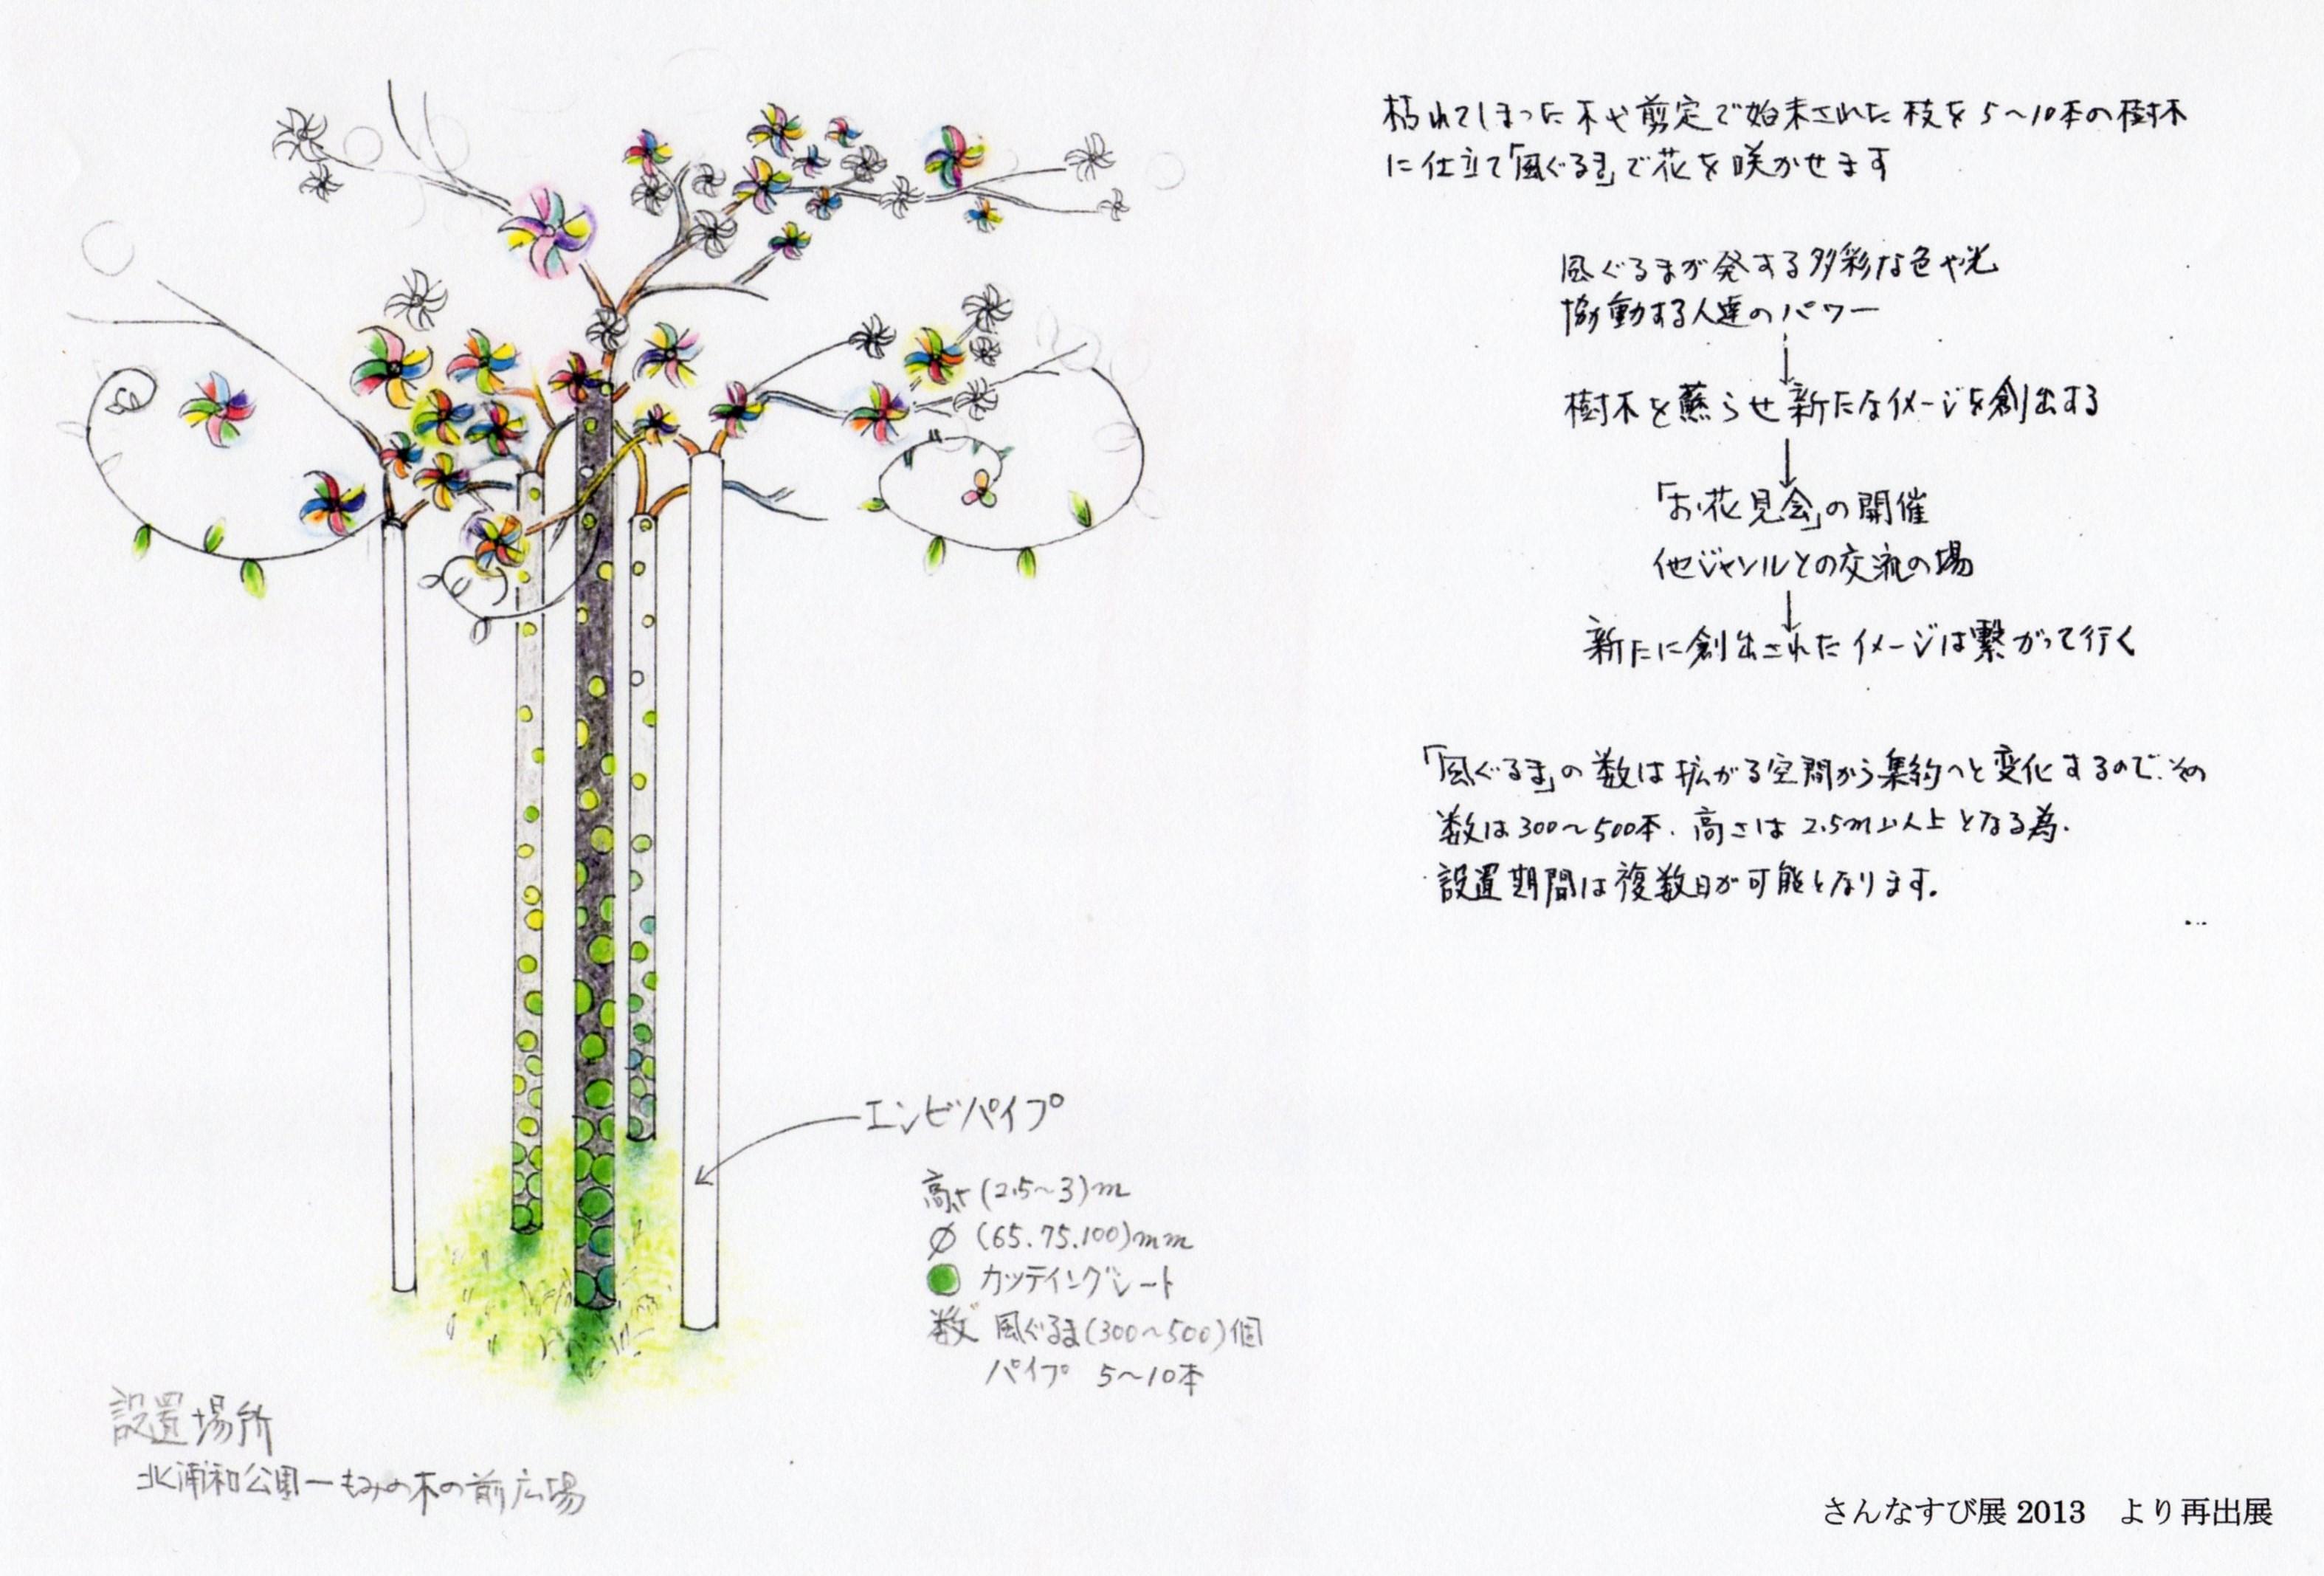 枯れてしまった木や剪定で始末された枝を5〜10本の樹木
に仕立て「風ぐるま」で花を咲かせます
風ぐるまが発する多彩な色や光
協動する人達のパワー
↓
樹木を蘇らせ新たなイメージを創出する
↓
「お花見会」の開催
他ジャンルとの交流の場
↓
新たに創出されたイメージは繋がって行く
「風ぐるま」の数は拡がる空間から集約へと変化するので、その
数は300〜500本、高さは2.5m以上となる為、
設置期間は複数日が可能となります。
エンビパイプ
高さ(2.5〜3)m
φ (65.75.100)mm
カッティングシート
数 風ぐるま(300〜500)個
パイプ 5〜10本
設置場所
北浦和公園ーもみの木の前広場
さんなすび展2013 より再出展